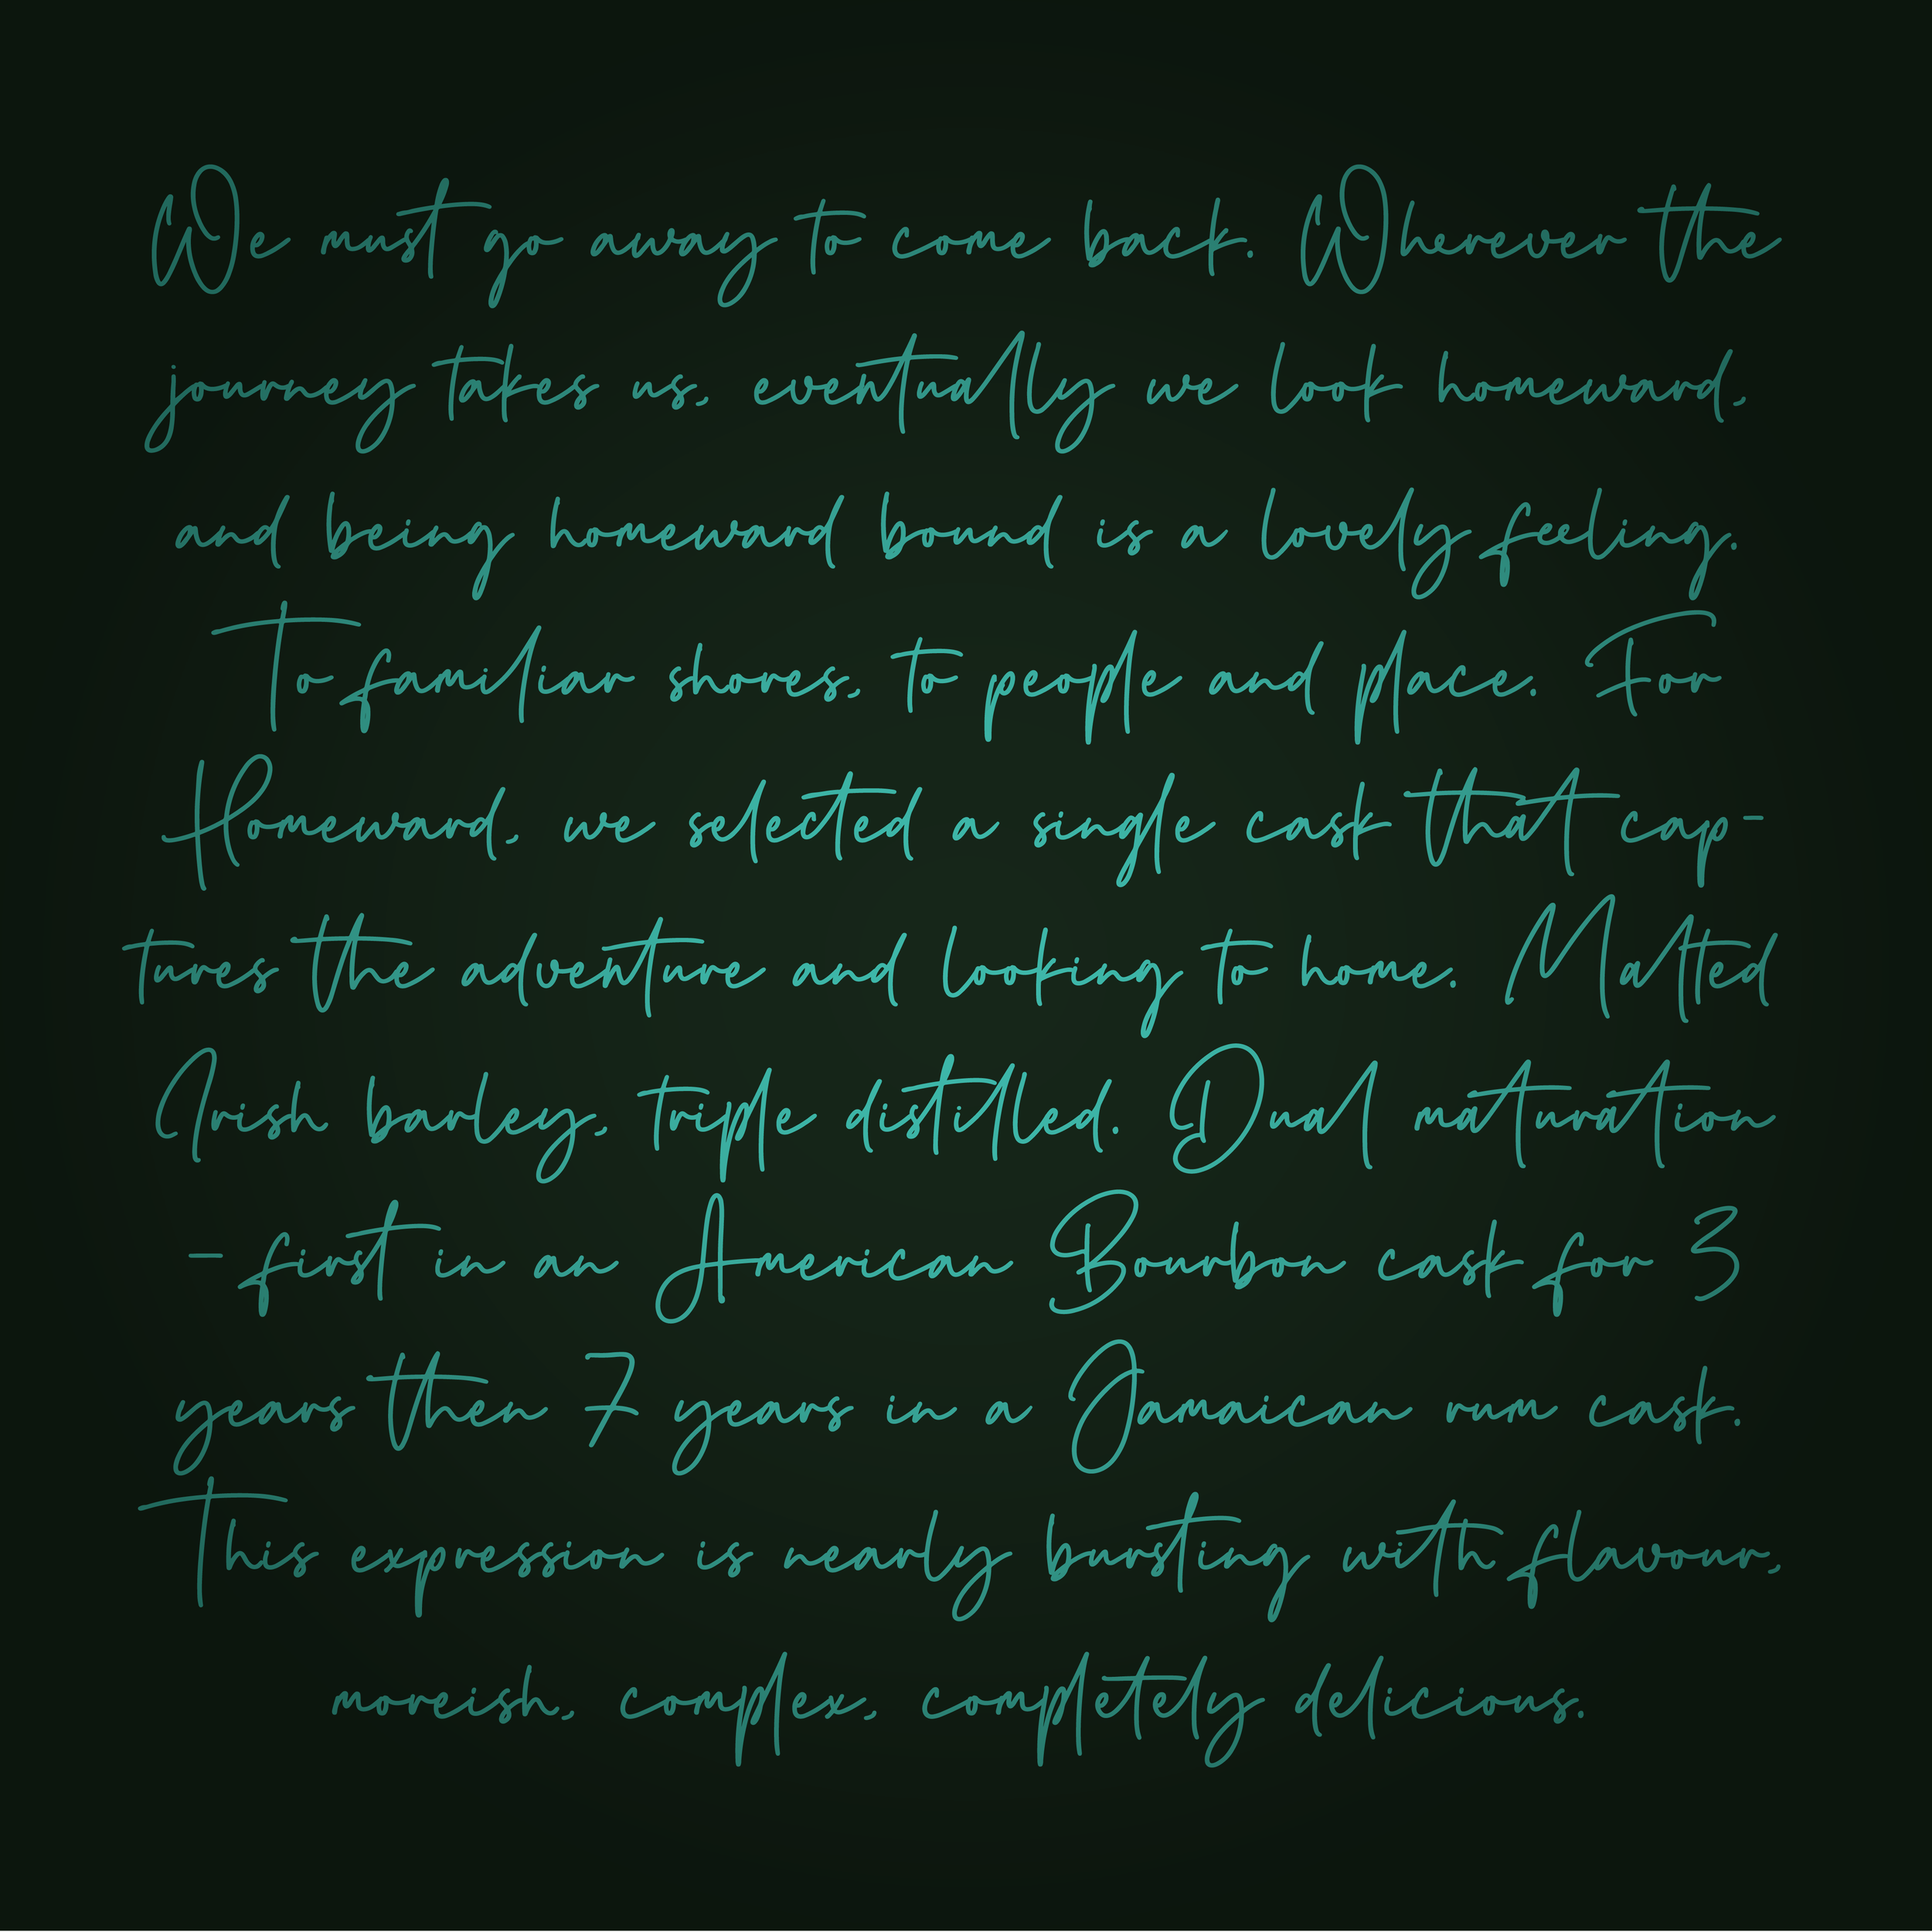 We must go away to come back. Wherever the
journey takes us, eventually we look homeward,
and being homeward bound is a lovely feeling.
To familiar shores, to people and place. For
Homeward, we selected a single cask that cap-
tures the adventure and looking to home. Malted
Irish barley, triple distilled. Dual maturation
- first in an American Bourbon cask for 3
years then 7 years in a Jamaican rum cask.
This expression is nearly bursting with flavour,
moreish, complex, completely delicious.